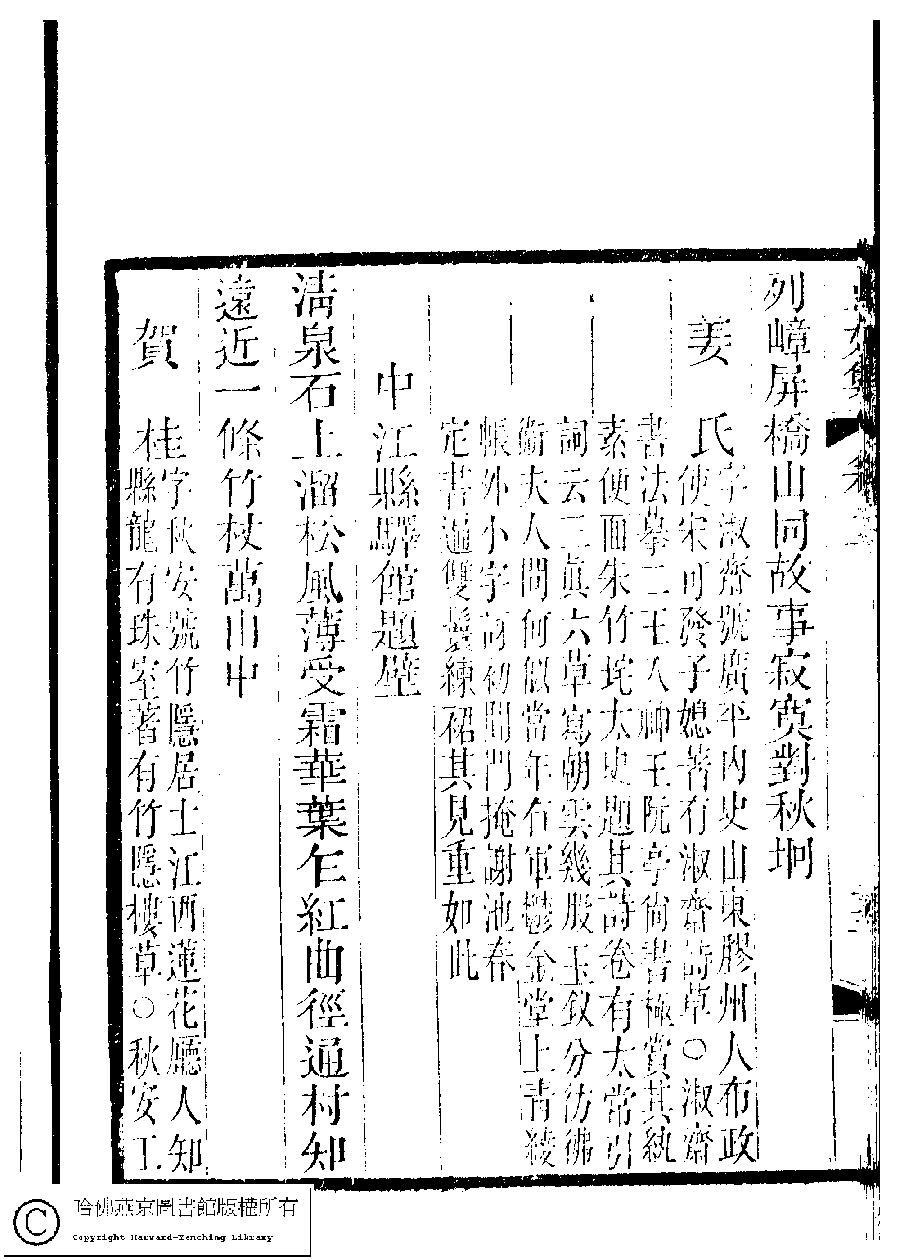 列嶂屏橋山同故事寂寞對秋坰
姜氏字淑齋號廣平內史山東膠州人布政
使宋可發子媳著有淑齋詩草○淑齋
書法摹二王入神王阮亭尚書極賞其紈
素便面朱竹垞太史題其詩卷有太常引
詞云三眞六草寫朝雲幾股玉釵分彷彿
衛夫人問何似當年右軍鬱金堂上青綾
帳外小字訝初聞門掩謝池春
定書遍雙鬟練裙其見重如此
中江縣驛館題壁
淸泉石上溜松風薄受霜華葉乍紅曲徑通村知
遠近一條竹杖萬山中
賀桂字秋安號竹隱居士江西蓮花廳人知
縣龍有珠室著有竹隱樓草○秋安工
哈佛燕京圖書館版權所有
Copyright Harvard-Yenching Library